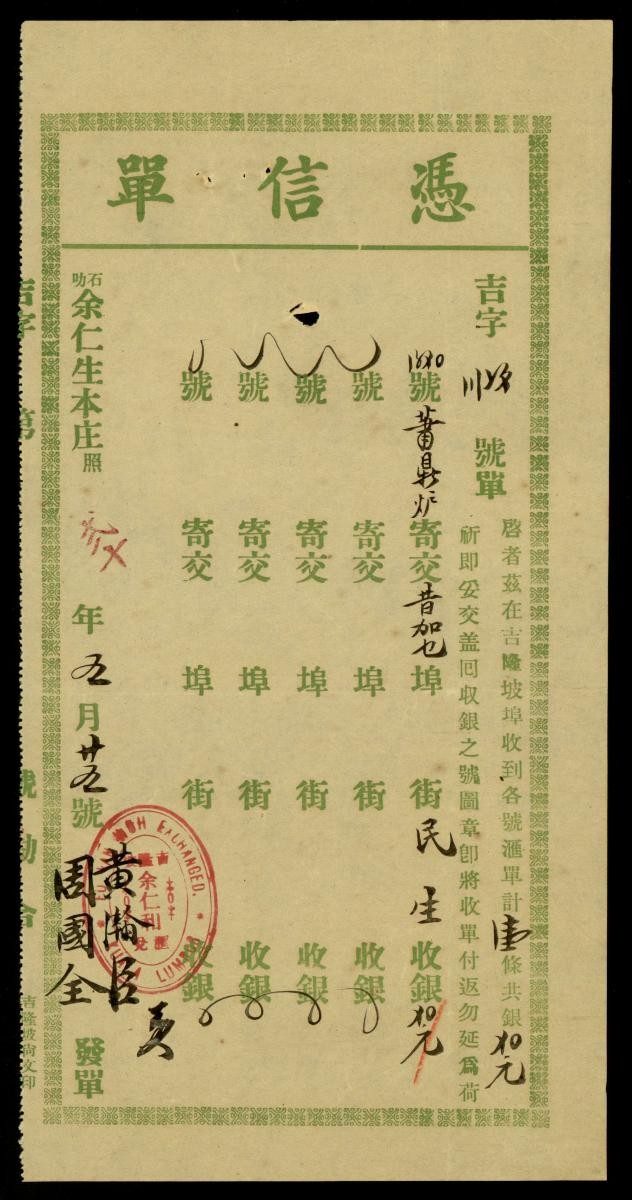 憑信單
吉字 號單
啓者茲在吉隆坡埠收到各號滙單計壹條共銀 元
祈即妥交盖囘收銀之號圖章卽將收單付返勿延爲荷
號蕭鼎炉寄交昔加也埠 街民生收銀 元
號 寄交 埠 街 收銀
號 寄交 埠 街 收銀
號 寄交 埠 街 收銀
號 寄交 埠 街 收銀
石叻余仁生本庄照
年五月廿五號 發單
黃瀚臣
周國全
EXCHANGED.
LUMPOR
余仁利
滙兌
吉字第 號
吉隆坡尚文印